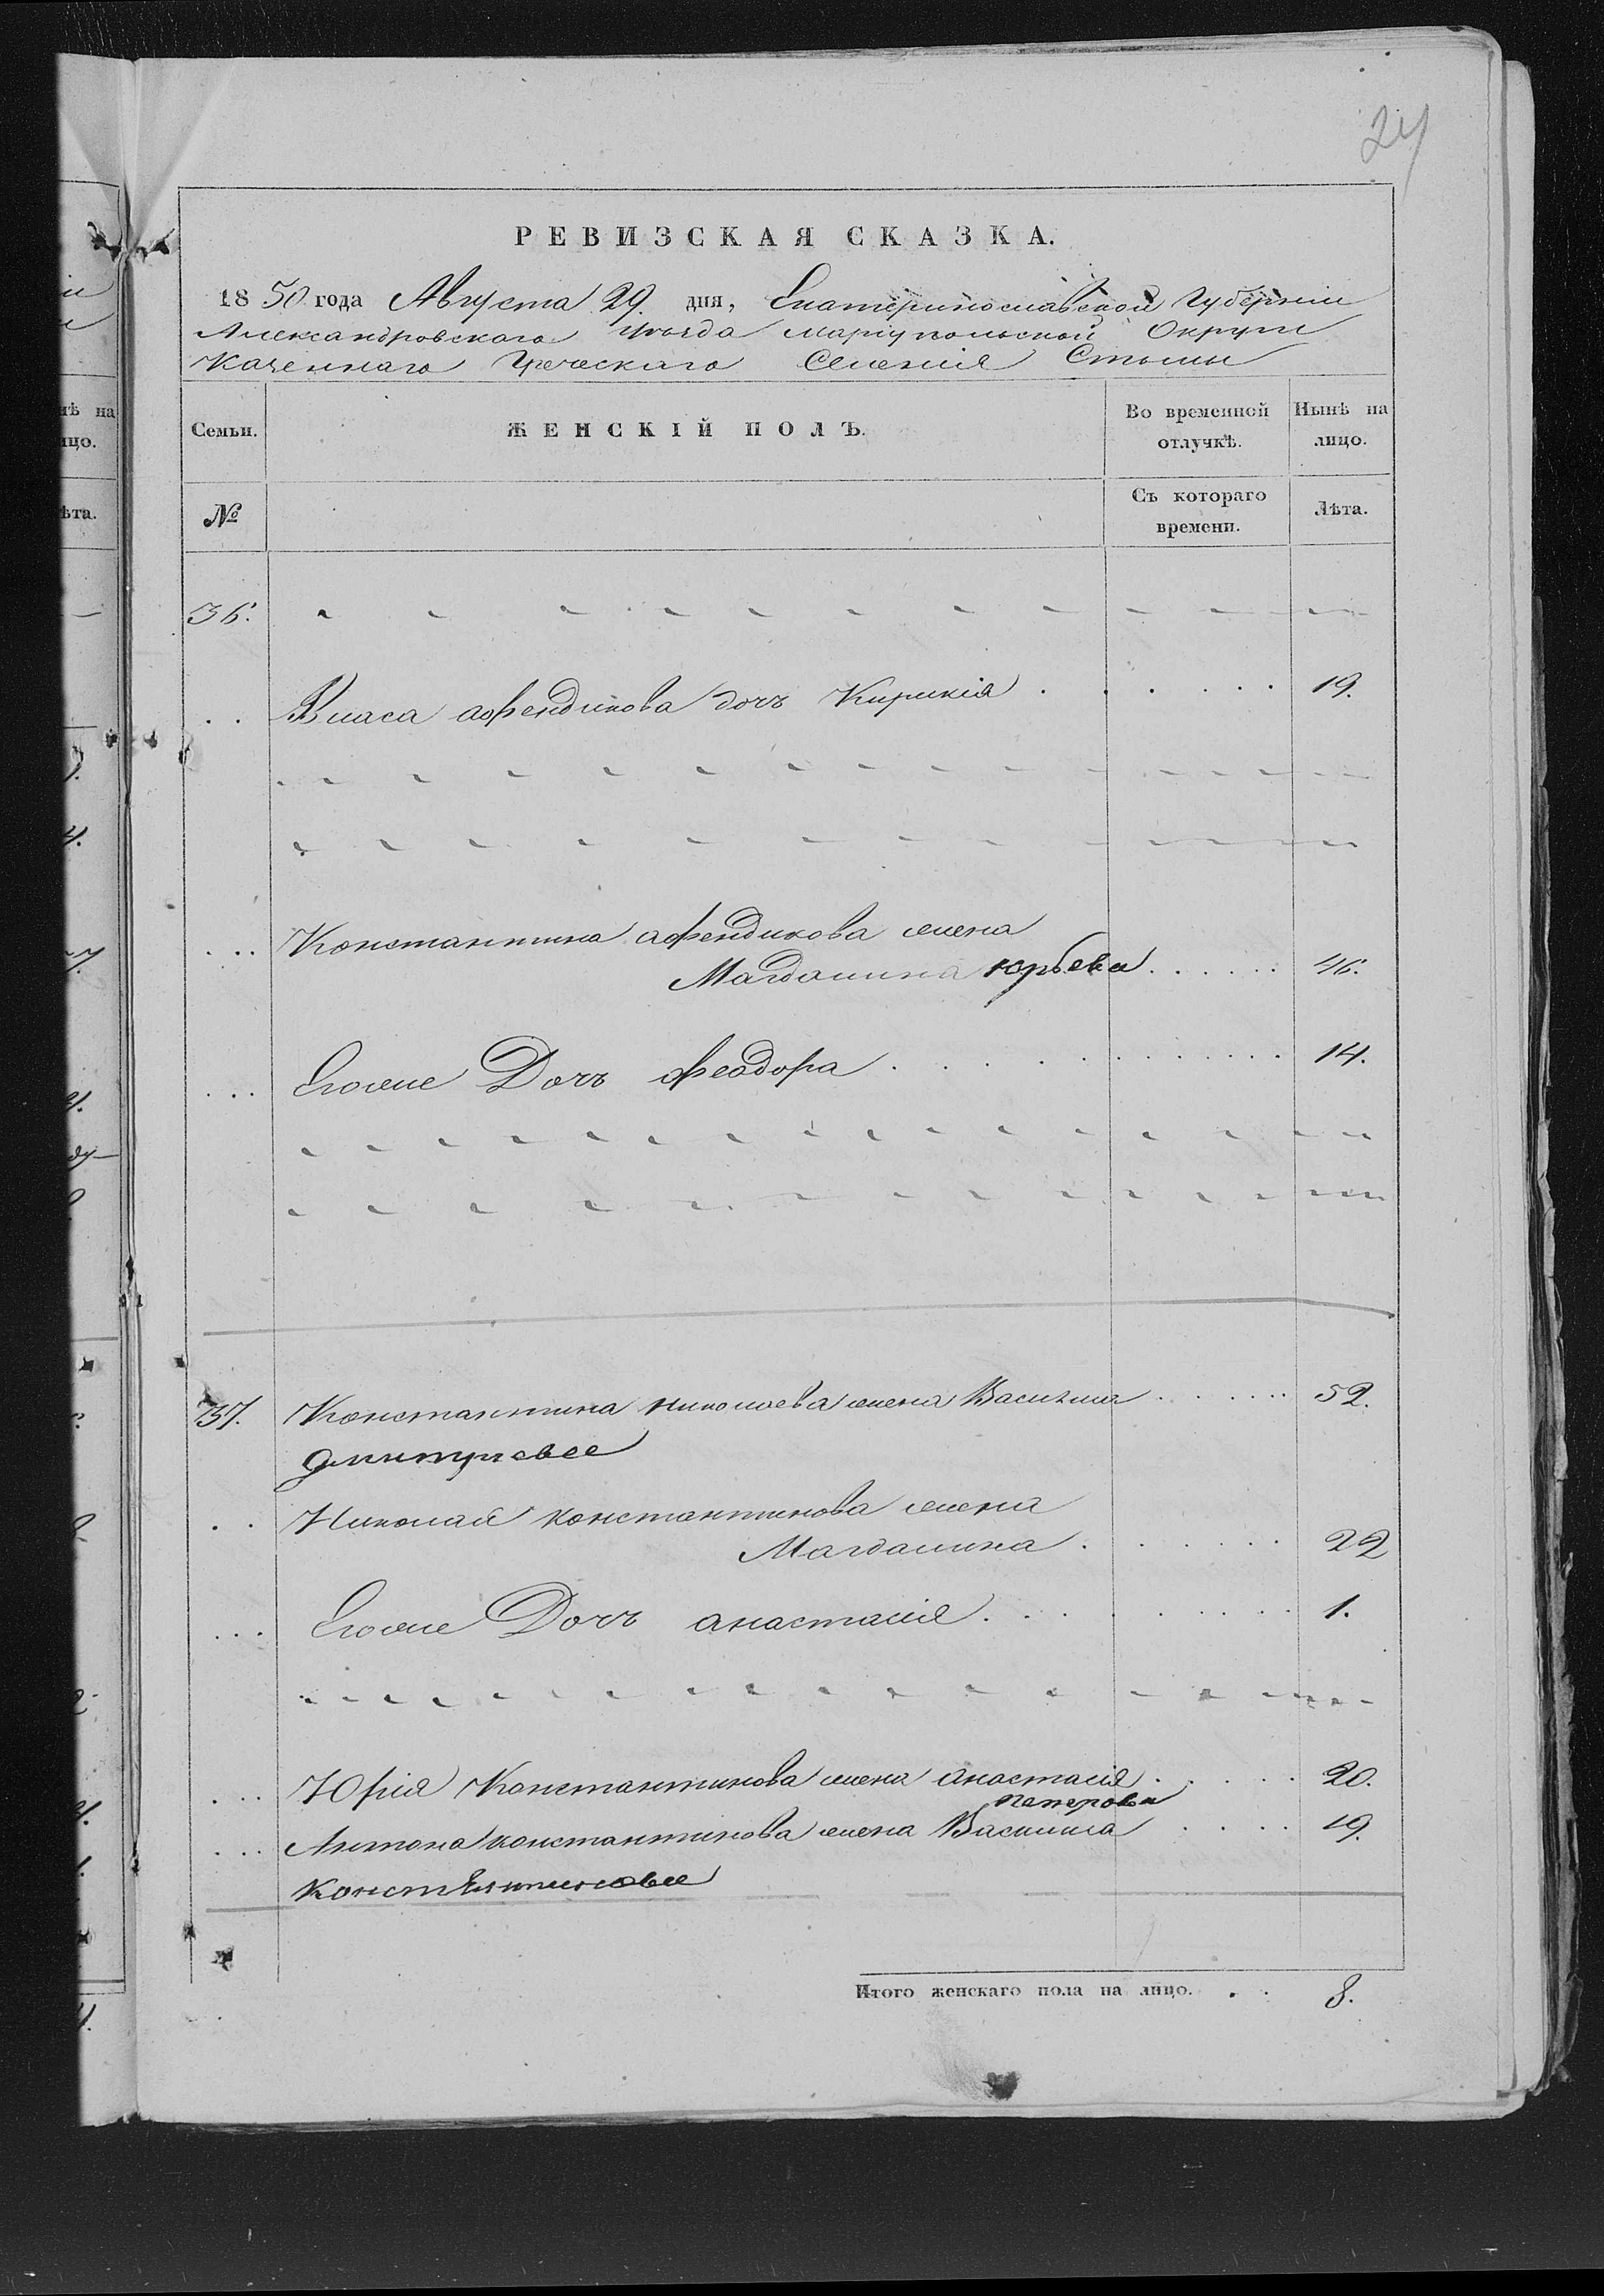 24
РЕВИЗСКАЯ СКАЗКА.
1850 года Августа 29. дня, Екатеринославской Губерніи
Александровскаго уѣзда Маріупольской Округи
Казеннаго Греческаго Селенія Стылы
Семьи.
ЖЕНСКІЙ ПОЛЪ.
Во временной отлучкѣ.
Нынѣ на лицо.
№
Съ котораго времени.
Лѣта.
36.
Власа афендикова дочь Кирикія 19.
Константина афендикова жена
Магдалина юрьева 46.
Егоже Дочь феодора 14.
37. Константина николаева жена Василиса 52.
дмитриева
Николая константинова жена
Магдалина 22
Егоже Дочь анастасія 1.
Юрія Константинова жена анастасія 20.
петрова
Антона константинова жена Василиса 19.
константинова
Итого женскаго пола на лицо. 8.